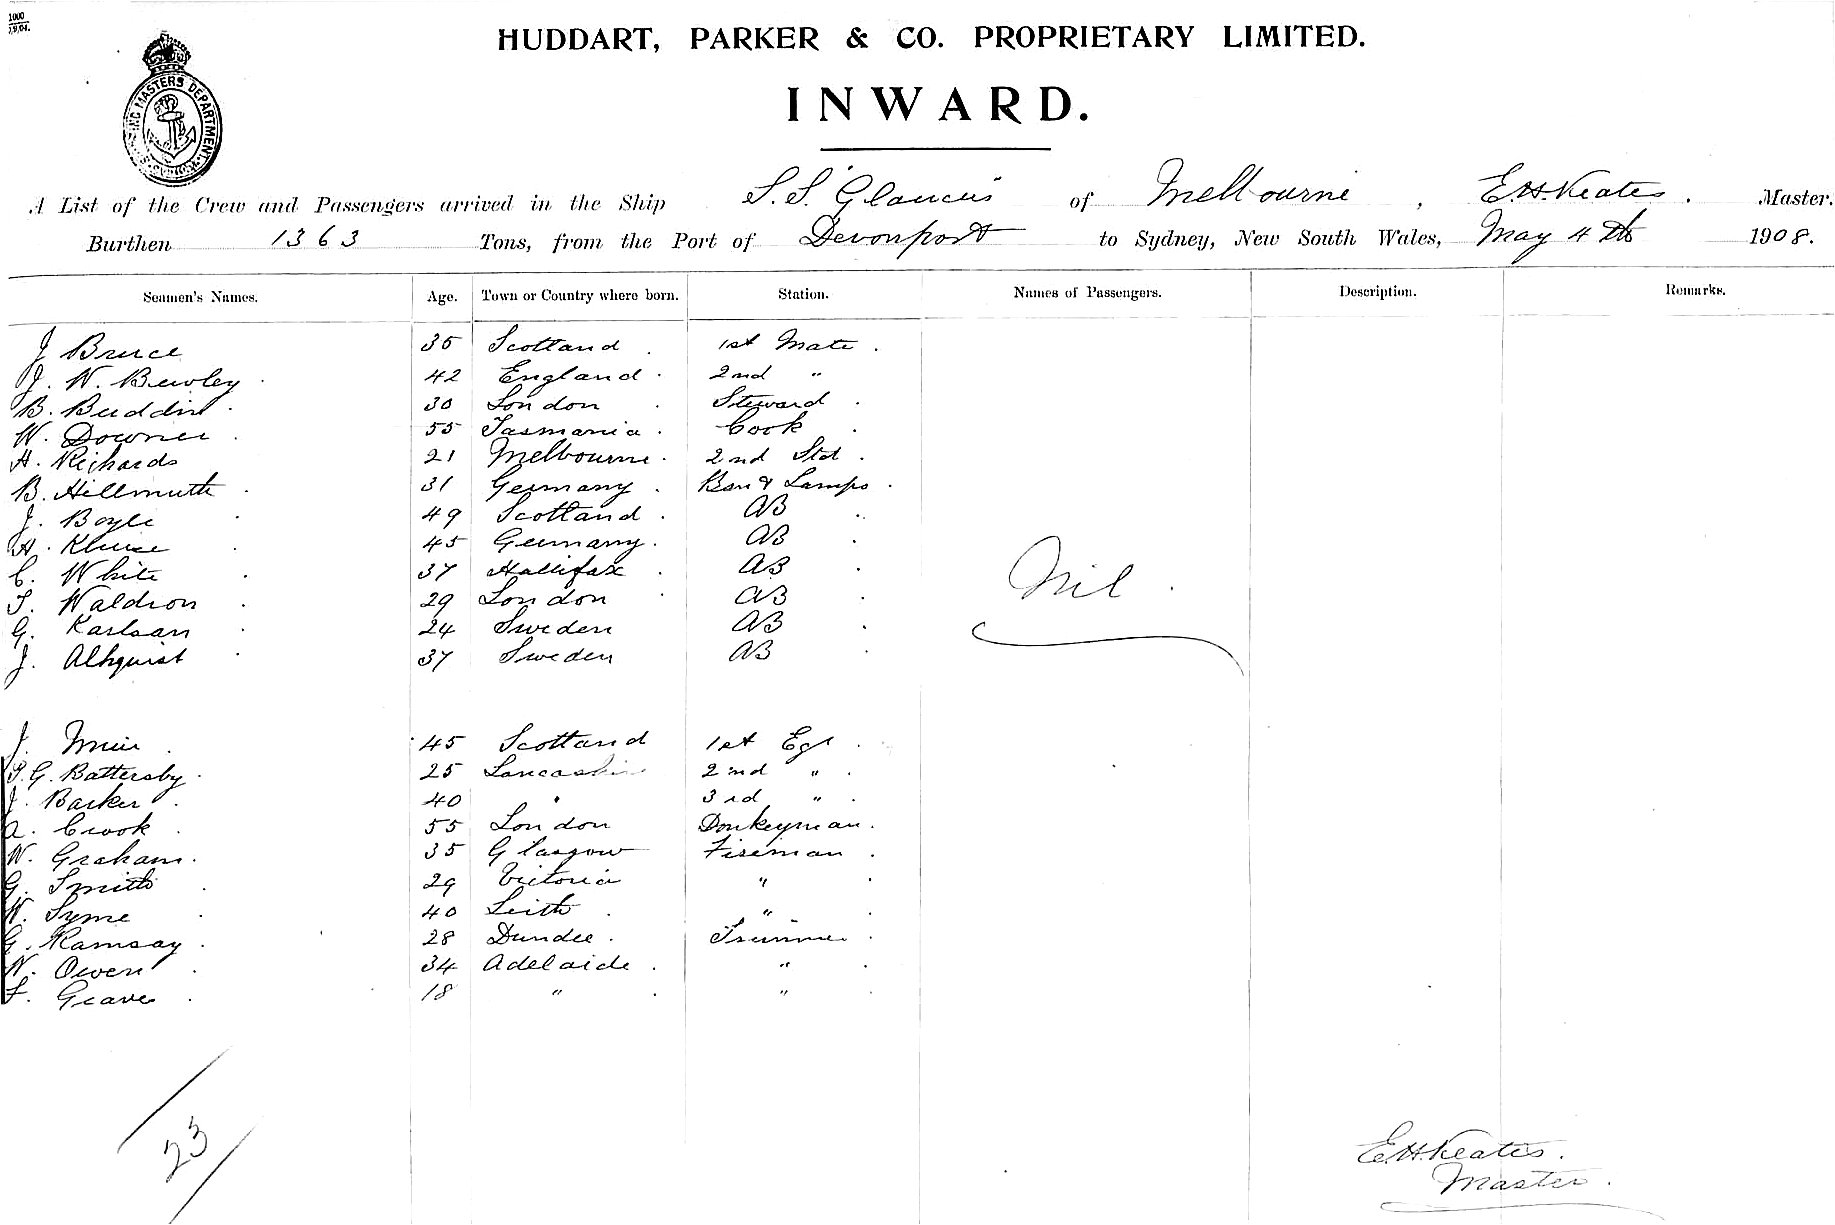 1000
7.9.04.
HUDDART, PARKER & CO. PROPRIETARY LIMITED.
INWARD.
MASTERS DEPARTMENT
A List of the Crew and Passengers arrived in the Ship S.S. "Glaucus" of Melbourne, E.H. Keates. Master.
Burthen 1363 Tons, from the Port of Devonport to Sydney, New South Wales, May 4th 1908.
Seamen's Names. Age. Town or Country where born. Station. Names of Passengers. Description. Remarks.
J Bruce 35 Scotland. 1st Mate.
J. W. Bewley. 42 England. 2nd "
B. Buddin. 30 London. Steward.
W. Downer. 55 Tasmania. Cook.
H. Richards 21 Melbourne. 2nd Std.
B. Hillmuth. 31 Germany. Bsn & Lamps.
J. Boyle. 49 Scotland. AB.
H. Kluse. 45 Germany. AB.
C. White. 37 Hallifax. AB.
T. Waldron. 29 London. AB.
G. Karlsan. 24 Sweden AB.
J. Alhquist. 37 Sweden AB.
Nil.
J. Muir. 45 Scotland 1st Egr.
T. G. Battersby. 25 Lancashire 2nd ".
J. Barker. 40 " 3rd ".
A. Crook. 55 London Donkeyman.
W. Graham. 35 Glasgow Fireman.
G. Smith. 29 Victoria ".
W. Syme. 40 Leith. ".
G. Ramsay. 28 Dundee. Trimmer.
W. Owen. 34 Adelaide. ".
F. Graves. 18 ". ".
23
E.H. Keates.
Master.